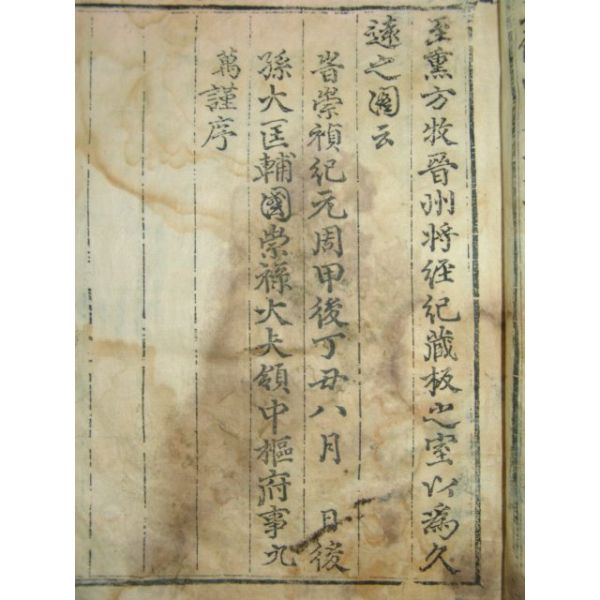 至熏方牧晉州將經紀藏板之室以爲久
遠之圖云
旹崇禎紀元周甲後丁丑八月　日後
孫大匡輔國崇祿大夫領中樞府事九
萬謹序